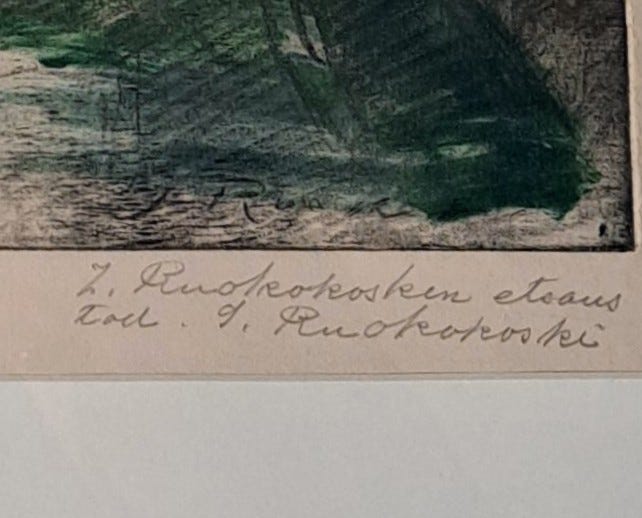 J. Ruokokosken etsaus
tod. S. Ruokokoski